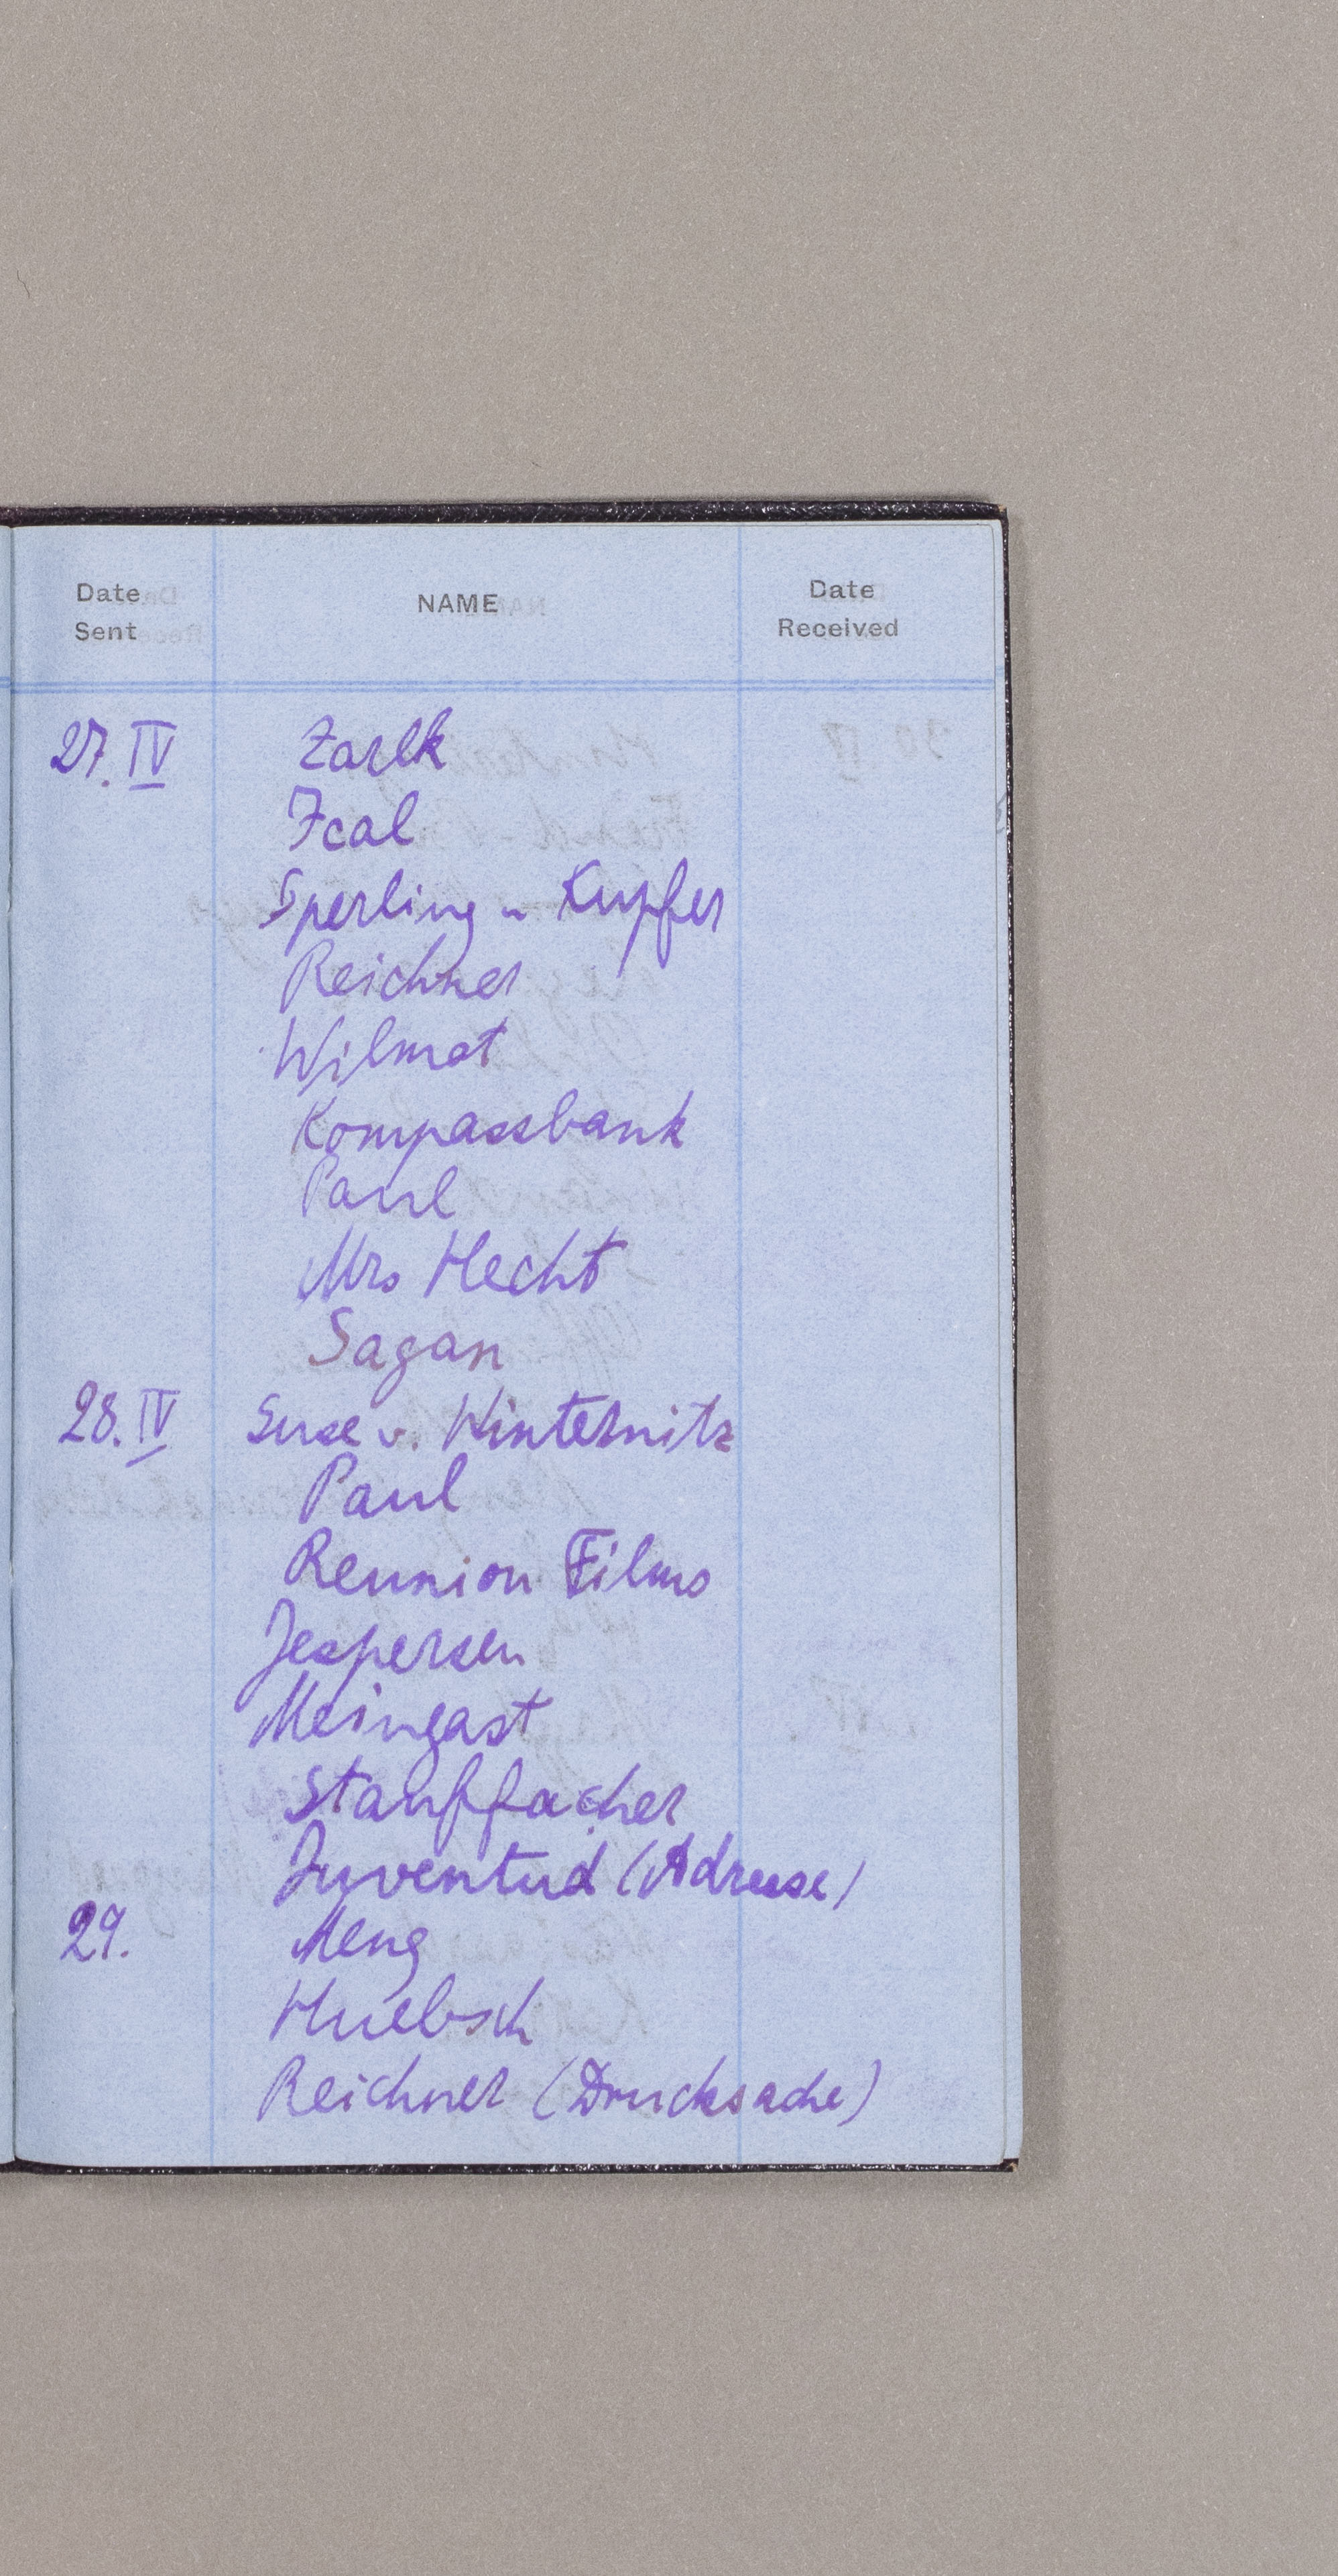 Date Sent NAME Date Received
27. IV Zarek
Ical
Sperling u Kupfer
Reichner
Wilmot
Kompassbank
Paul
Mrs Hecht
Sagan
28. IV Suse v. Winternitz
Paul
Reunion Films
Jespersen
Meingast
Stauffacher
Juventud (Adresse)
29. Meng
Huebsch
Reichner (Drucksache)